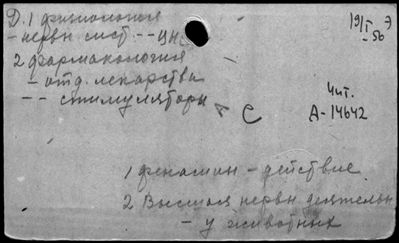 Д. 1 физиология
- нервн сист - - ЦНС
2 фармакология
- отд. лекарства
- - стимуляторы
19/I - 56 Э
Чит.
А-14642
С
1 фенамин - действие
2 Высшая нервн деятельн
- у животных